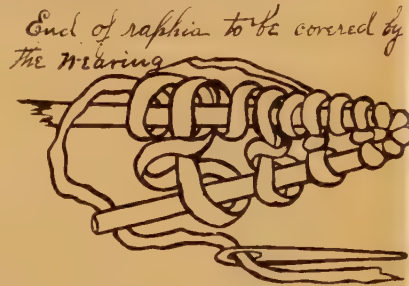 End of raphia to be covered by
the wearing